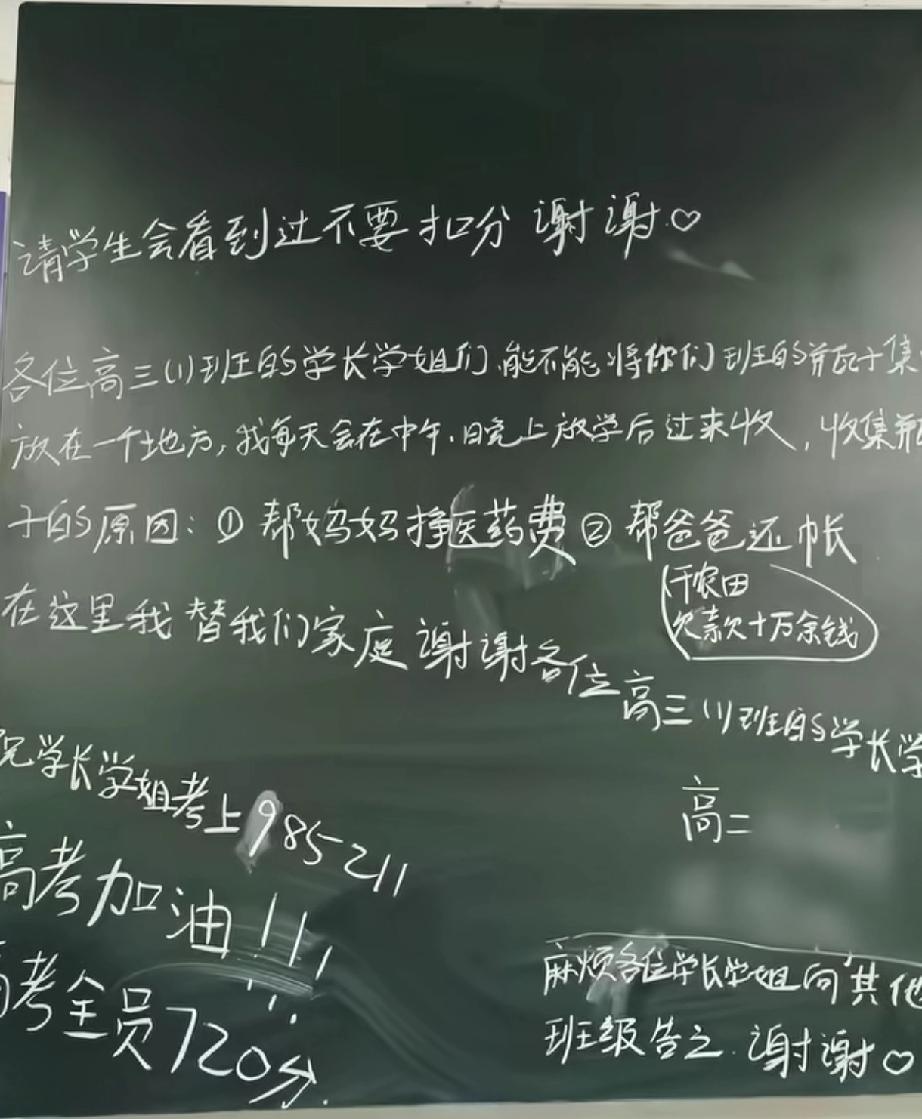 请学生会看到过不要扣分 谢谢♡
各位高三(1)班的学长学姐们,能不能将你们班的瓶子集
放在一个地方,我每天会在中午、晚上放学后过来收,收集瓶
子的原因:① 帮妈妈挣医药费 ② 帮爸爸还帐
(干农田
欠款十万余钱
在这里我替我们家庭谢谢各位高三(1)班的学长学
高二
祝学长学姐考上985 211
高考加油!!!
高考全员720分.
麻烦各位学长学姐向其他
班级告之.谢谢♡